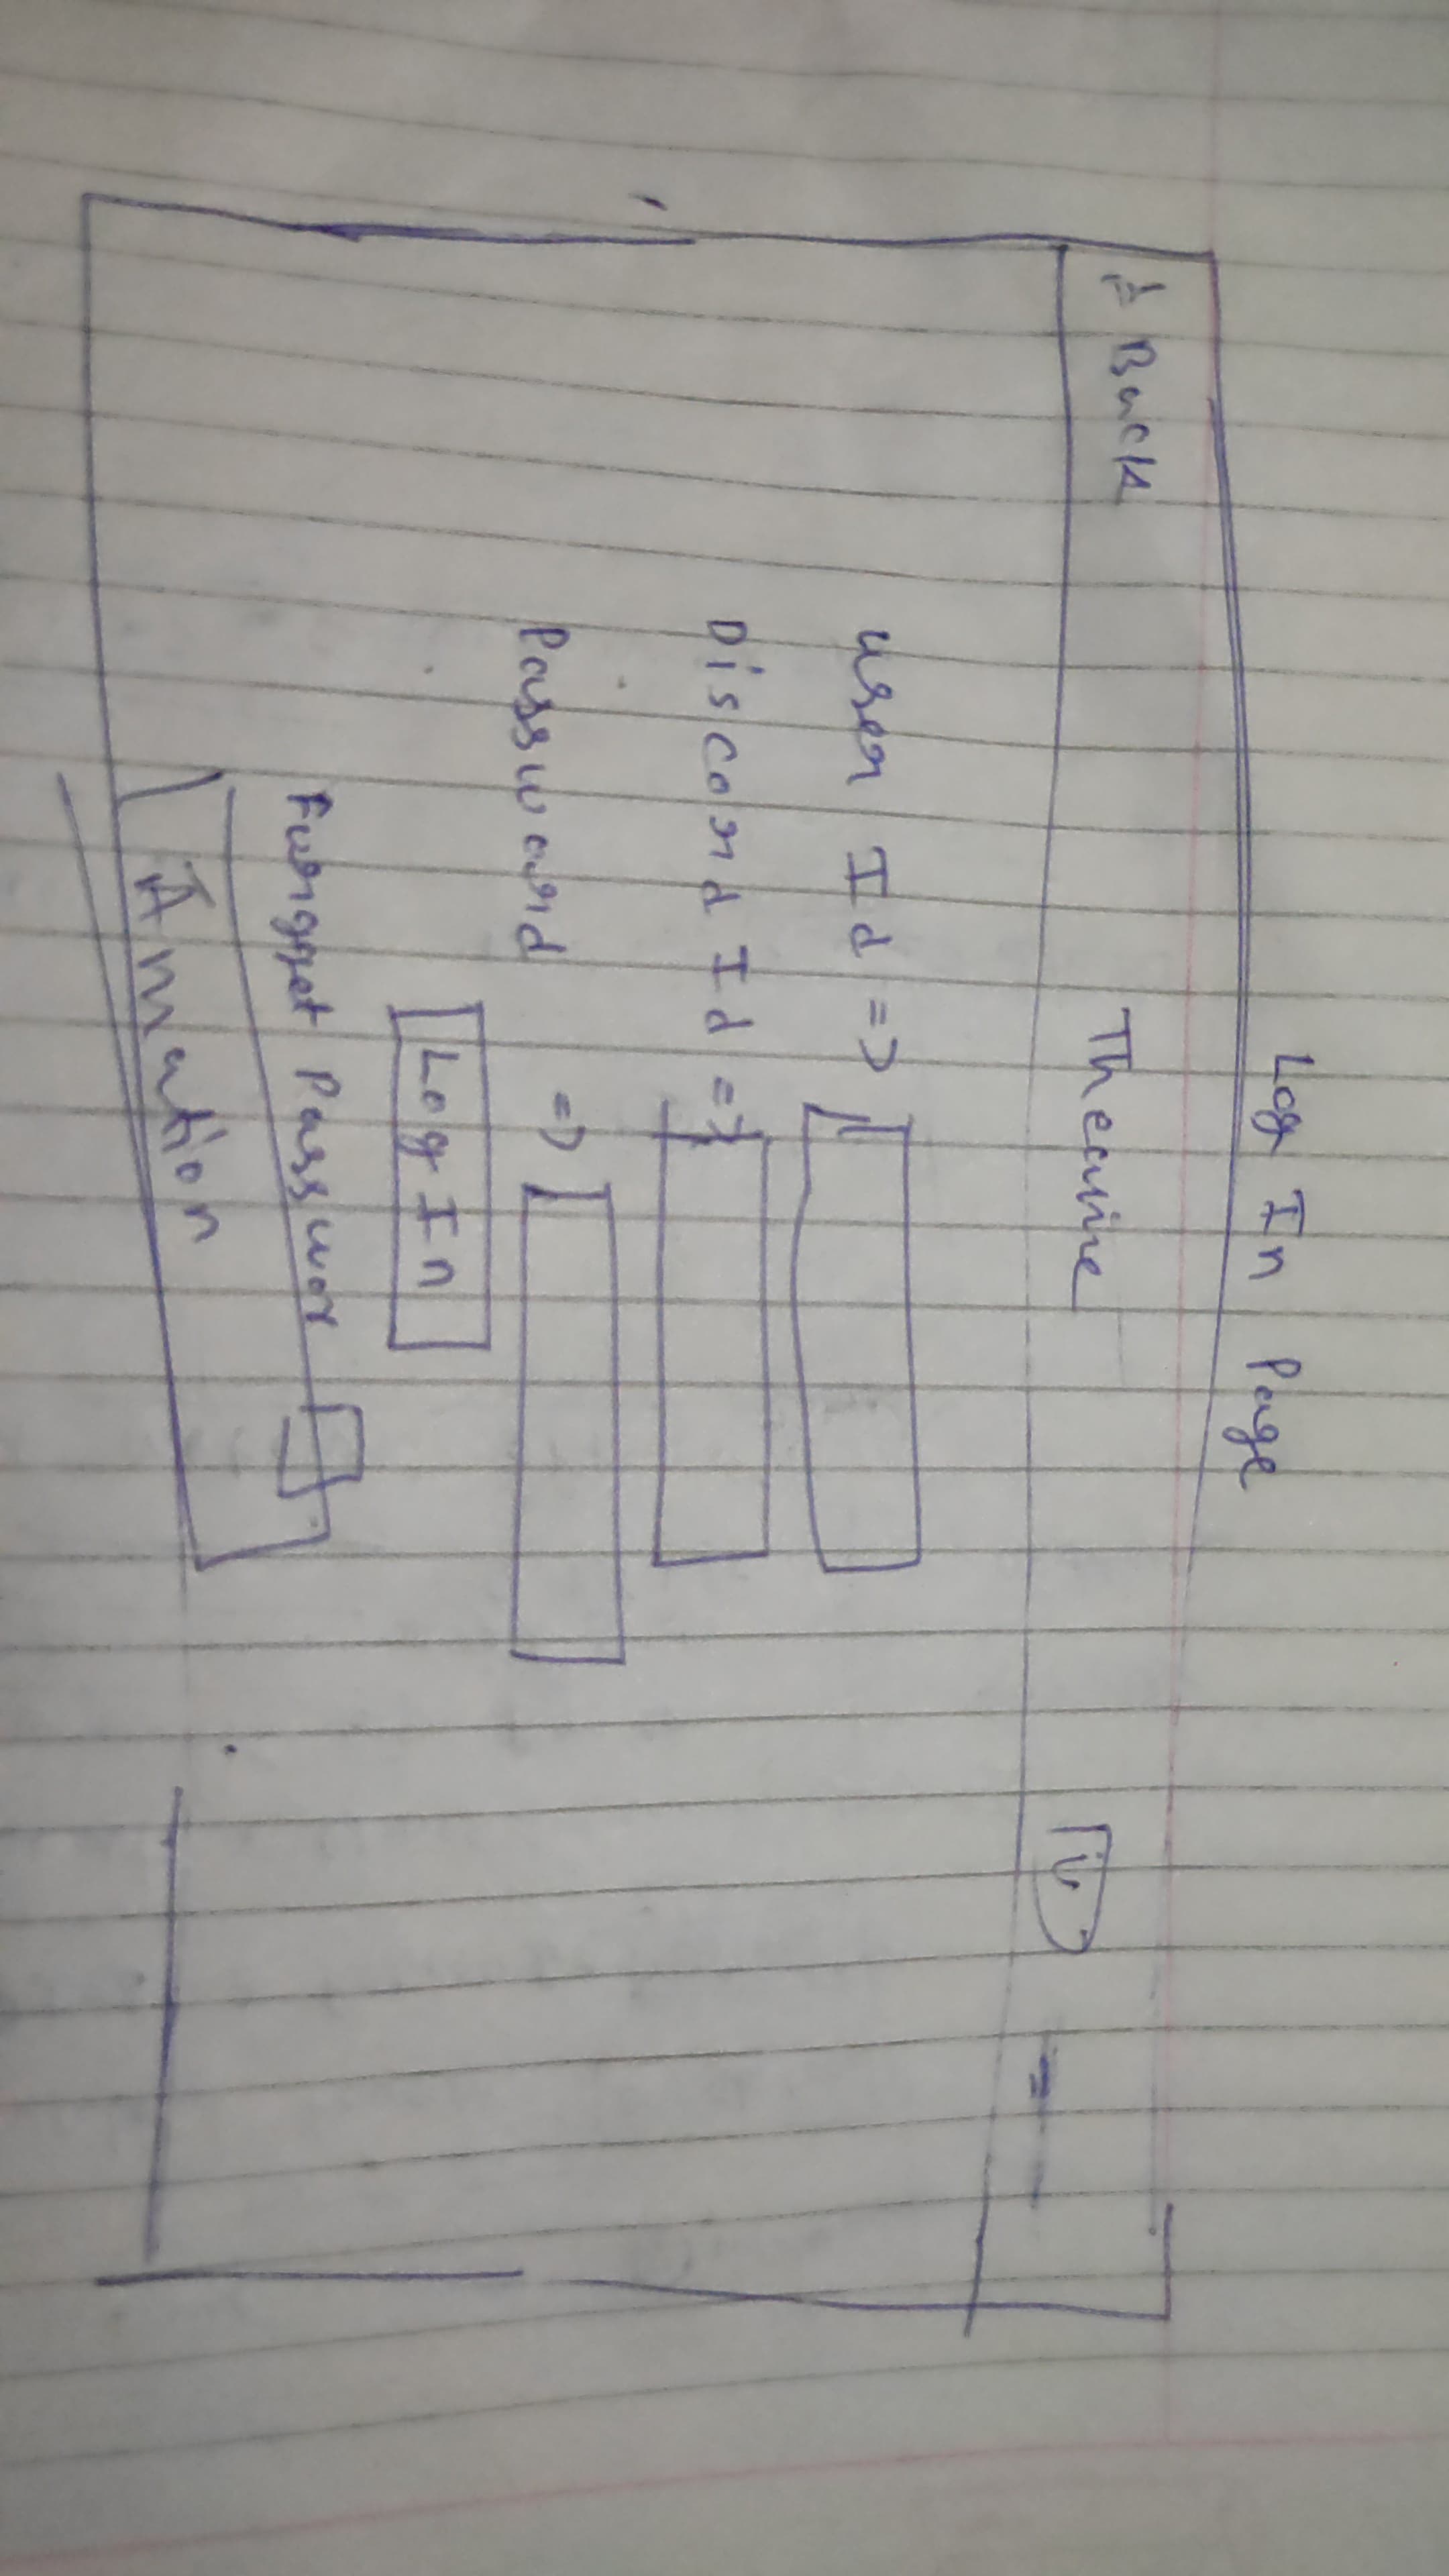 Log In Page
← Back Thecurine
User Id =>
Discord Id =>
Password =>
Log In
Forgget Passwor
Amation